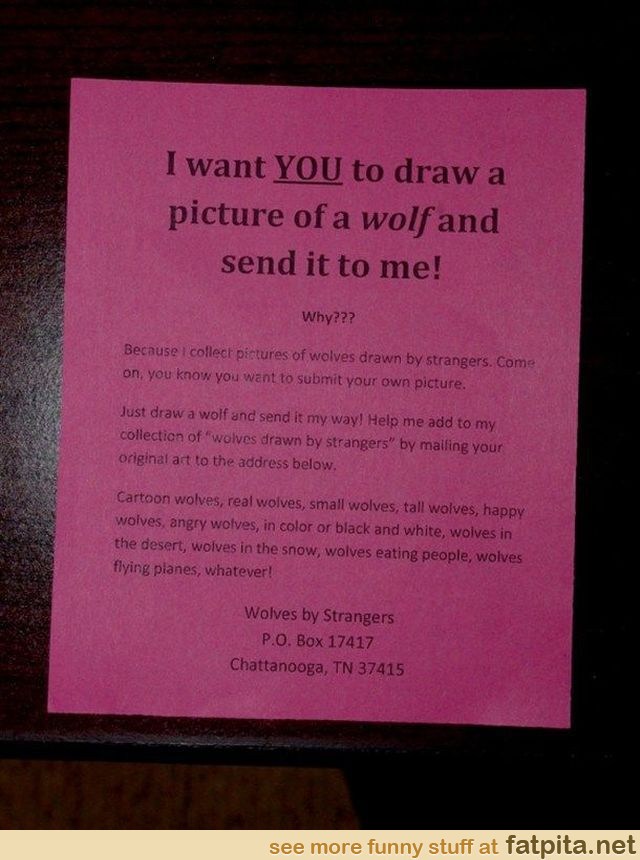 I want YOU to draw a
picture of a wolf and
send it to me!
Why???
Because I collect pictures of wolves drawn by strangers. Come
on, you know you want to submit your own picture.
Just draw a wolf and send it my way! Help me add to my
collection of "wolves drawn by strangers" by mailing your
original art to the address below.
Cartoon wolves, real wolves, small wolves, tall wolves, happy
wolves, angry wolves, in color or black and white, wolves in
the desert, wolves in the snow, wolves eating people, wolves
flying planes, whatever!
Wolves by Strangers
P.O. Box 17417
Chattanooga, TN 37415
see more funny stuff at fatpita.net